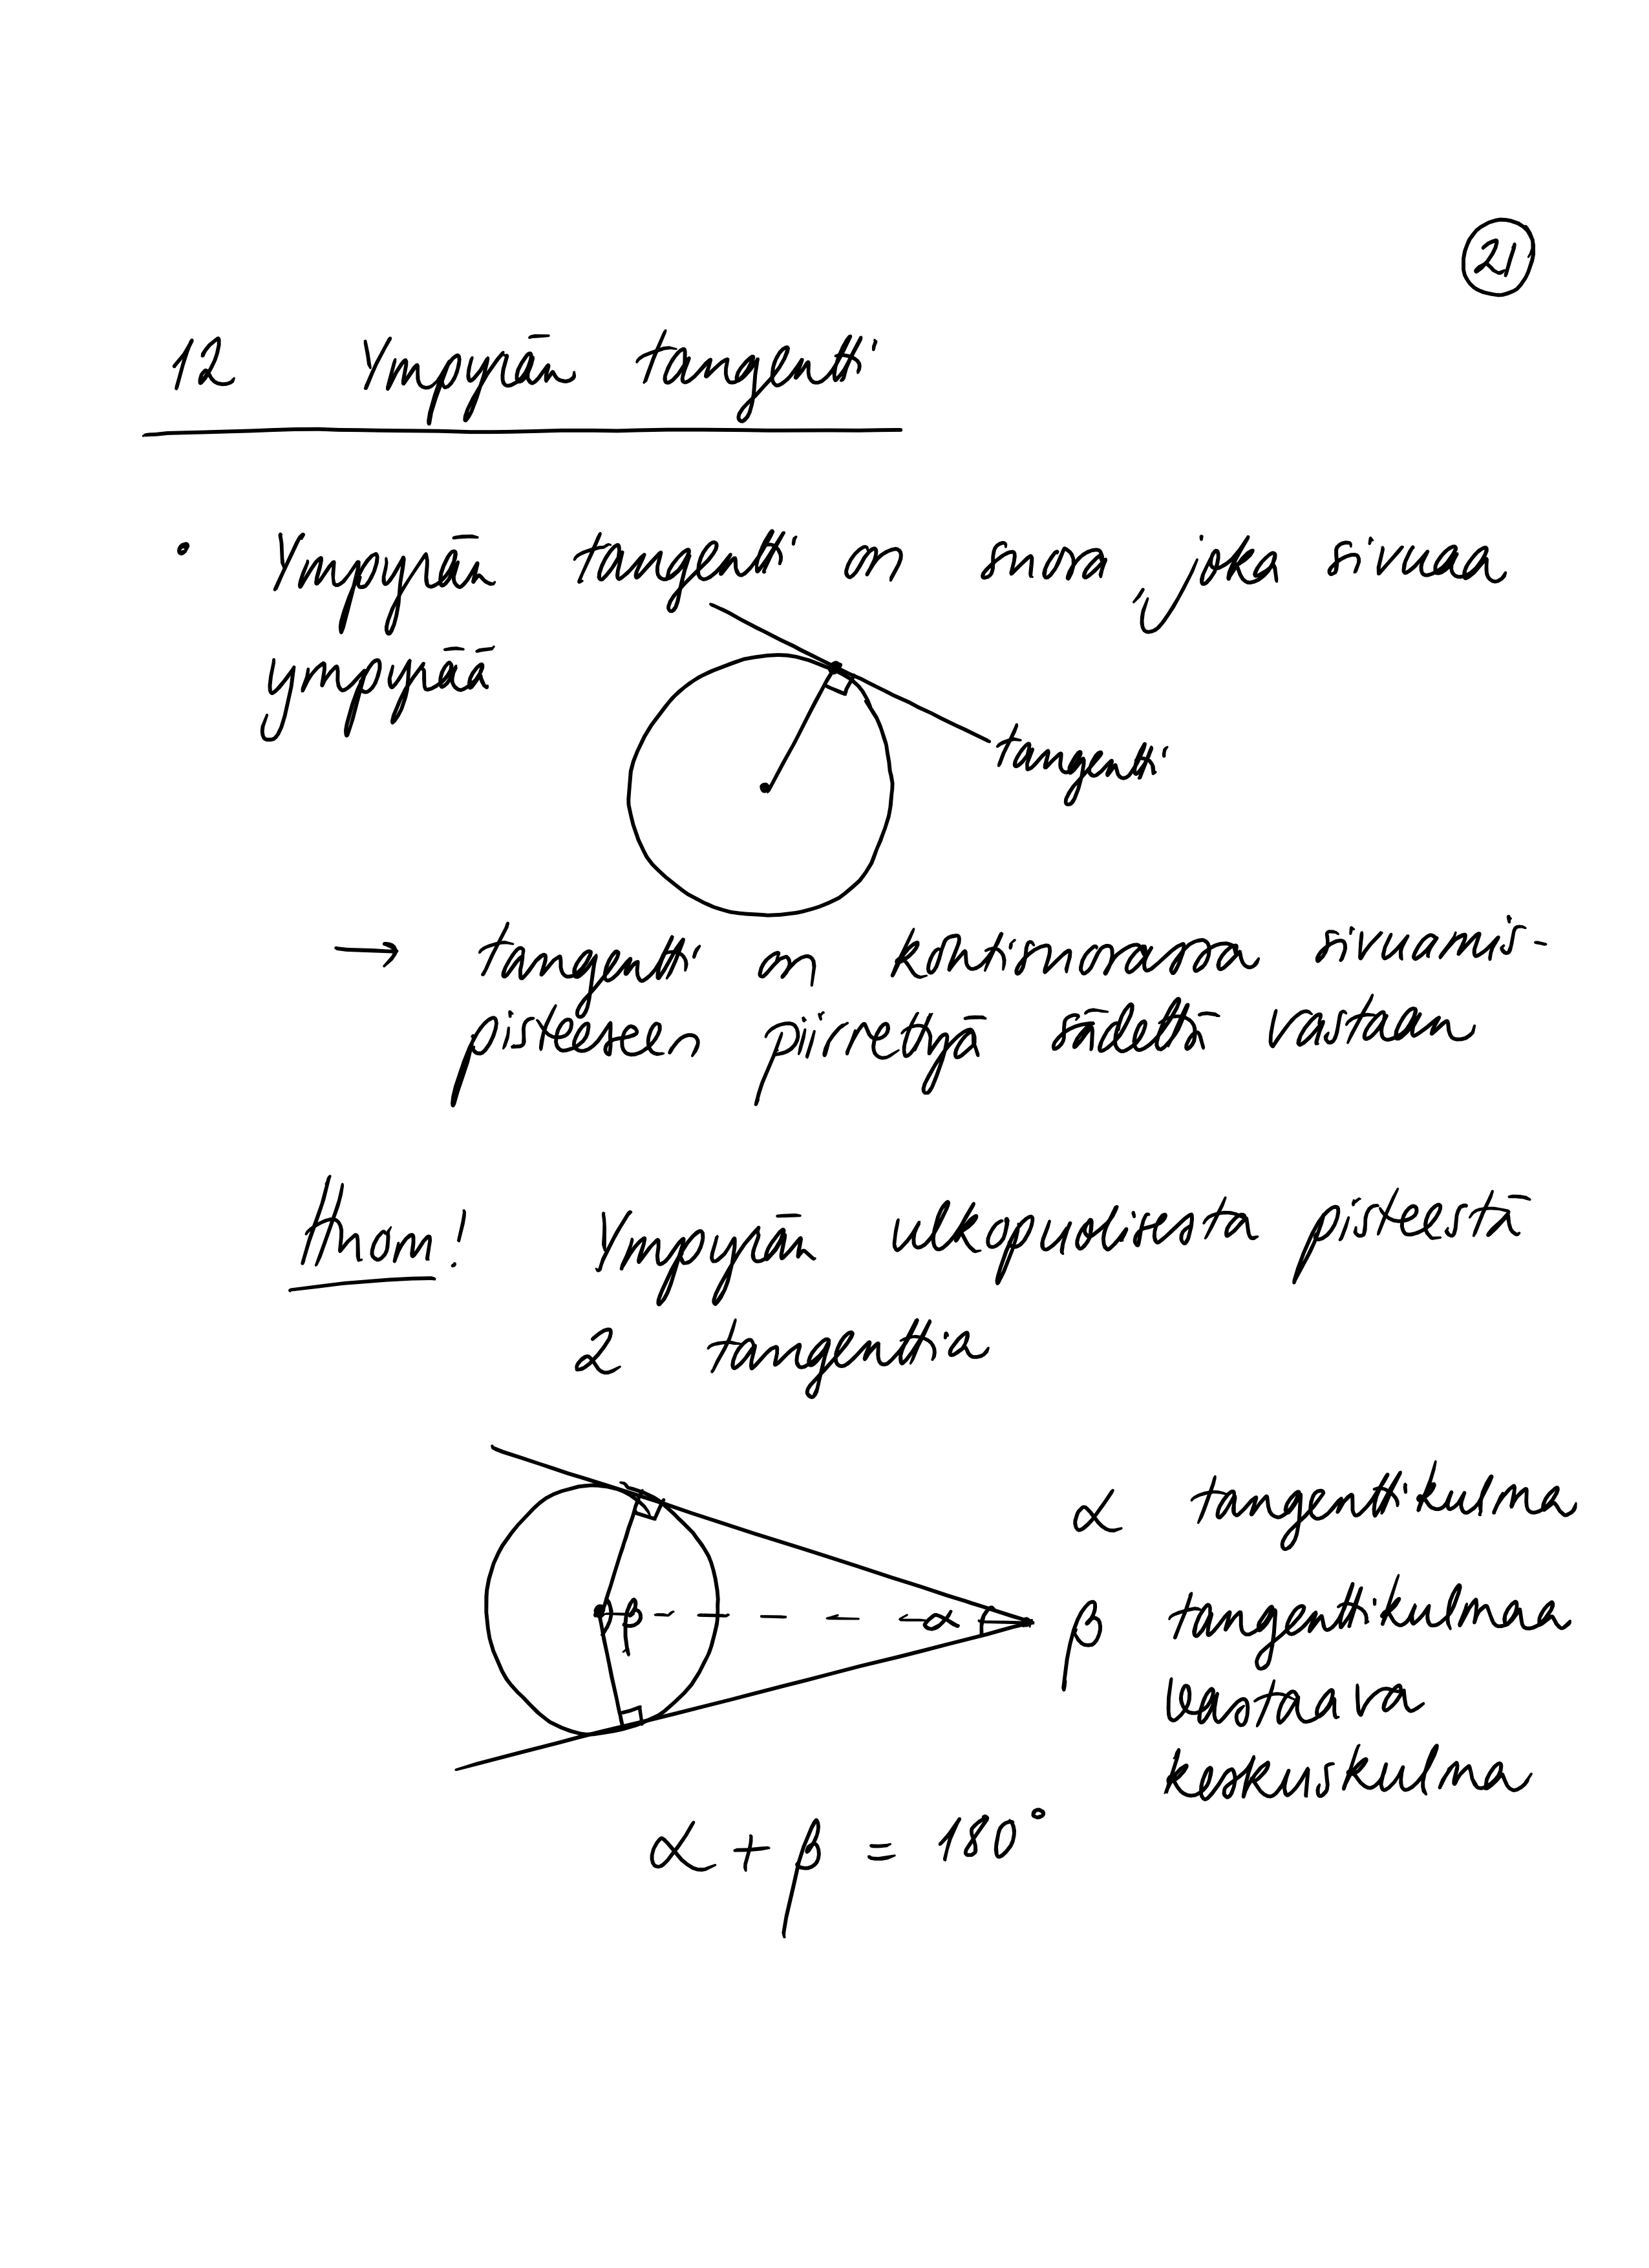 21
12 Ympyrän tangentti
• Ympyrän tangentti on suora, joka sivuaa
ympyrää
tangentti
→ tangentti on kohtisuorassa sivuamis-
pisteeseen piirrettyä sädettä vastaan
Huom! Ympyrän ulkopuolisesta pisteestä
2 tangenttia
α tangenttikulma
β α
β tangenttikulmaa
vastaava
keskuskulma
α + β = 180°